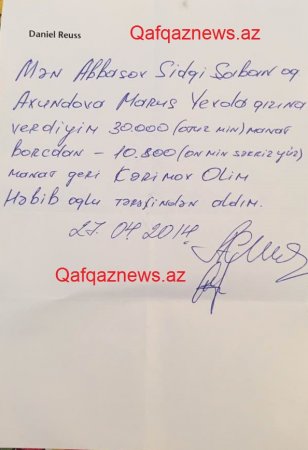 Daniel Reuss
Qafqaznews.az
Mən Abbasov Sidqi Şaban oq
Axundova Maruş Yevda qızına
verdiyim 30.000 (otuz min) manat
Borcdan - 10.800 (on min səkkiz yüz)
manat geri Kərimov Olim
Həbib oglu tərəfindən aldım.
27.04.2014
Qafqaznews.az